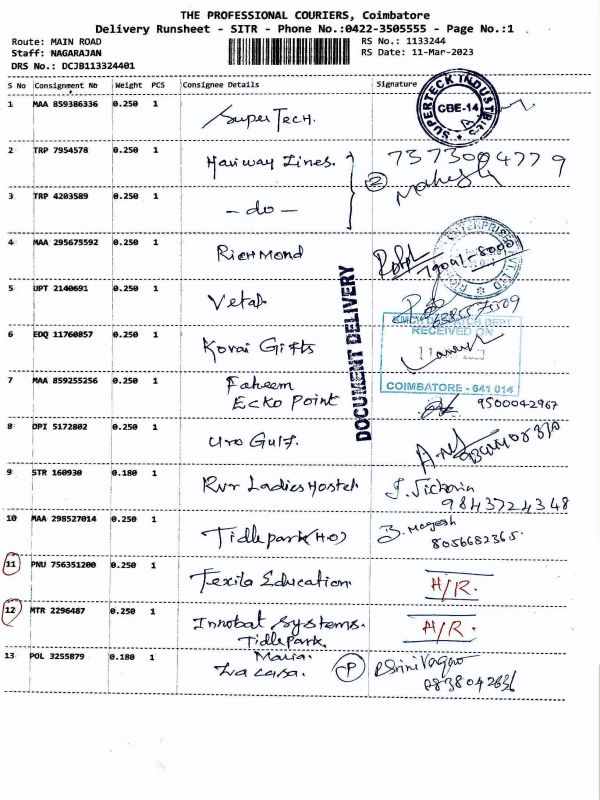 THE PROFESSIONAL COURIERS, Coimbatore
Delivery Runsheet - SITR - Phone No.:0422-3505555 - Page No.:1
Route: MAIN ROAD RS No.: 1133244
Staff: NAGARAJAN RS Date: 11-Mar-2023
DRS No.: DCJB113324401
S No Consignment No Weight PCS Consignee Details Signature
1 MAA 859386336 0.250 1 Super Tech. SUPERTECK INDUSTRIES CBE-14
2 TRP 7954578 0.250 1 Hariway Lines. 7373004779
2 Mahesh
3 TRP 4203589 0.250 1 - do -
4 MAA 295675592 0.250 1 Richmond
5 UPT 2140691 0.250 1 Vetah
DOCUMENT DELIVERY
RECEIVED ON
6 EDQ 11760857 0.250 1 Kovai Gifts
7 MAA 859255256 0.250 1 Faheem
COIMBATORE - 641 014
Ecko Point 9500042967
8 DPI 5172802 0.250 1 Uro Gulf.
9 STR 160930 0.180 1 Rvr Ladies Hostel J. Victoria
9843724348
10 MAA 298527014 0.250 1 Tidlepark (HO) B. Magesh
8056682365.
11 PNU 756351200 0.250 1 Texila Education H/R.
12 MTR 2296487 0.250 1 Innobat Systems. H/R.
Tidlepark.
13 POL 3255879 0.180 1 Maria.
La casa. P